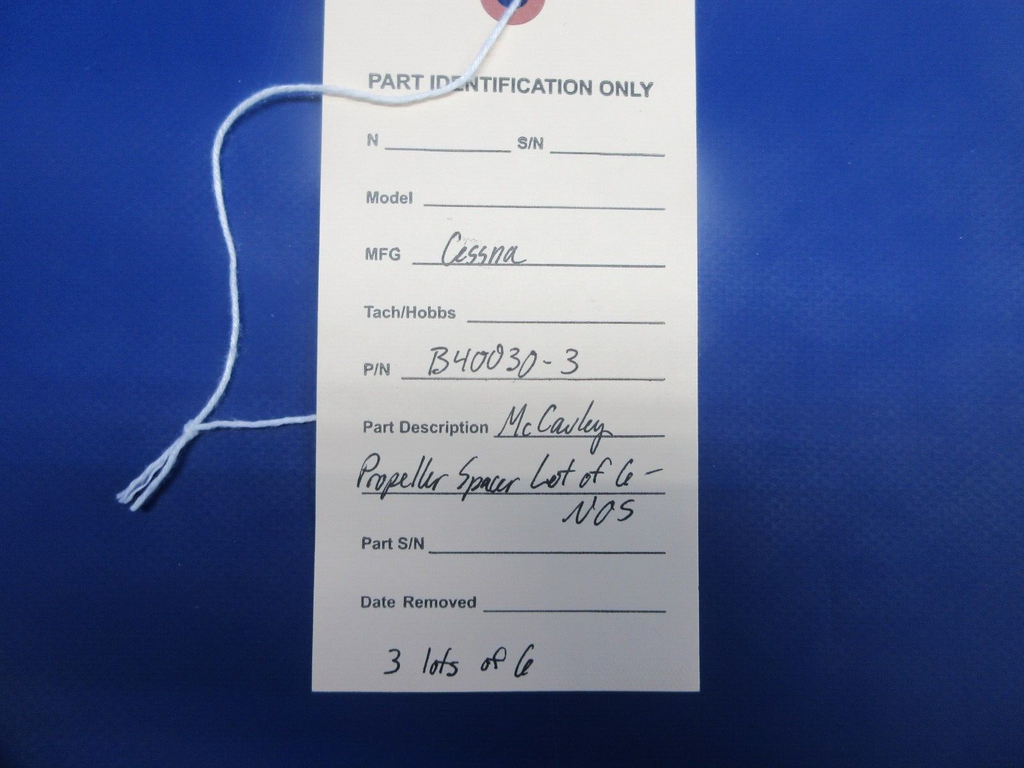 PART IDENTIFICATION ONLY
N S/N
Model
MFG Cessna
Tach/Hobbs
P/N B40030-3
Part Description McCauley
Propeller Spacer Lot of 6 -
NOS
Part S/N
Date Removed
3 lots of 6